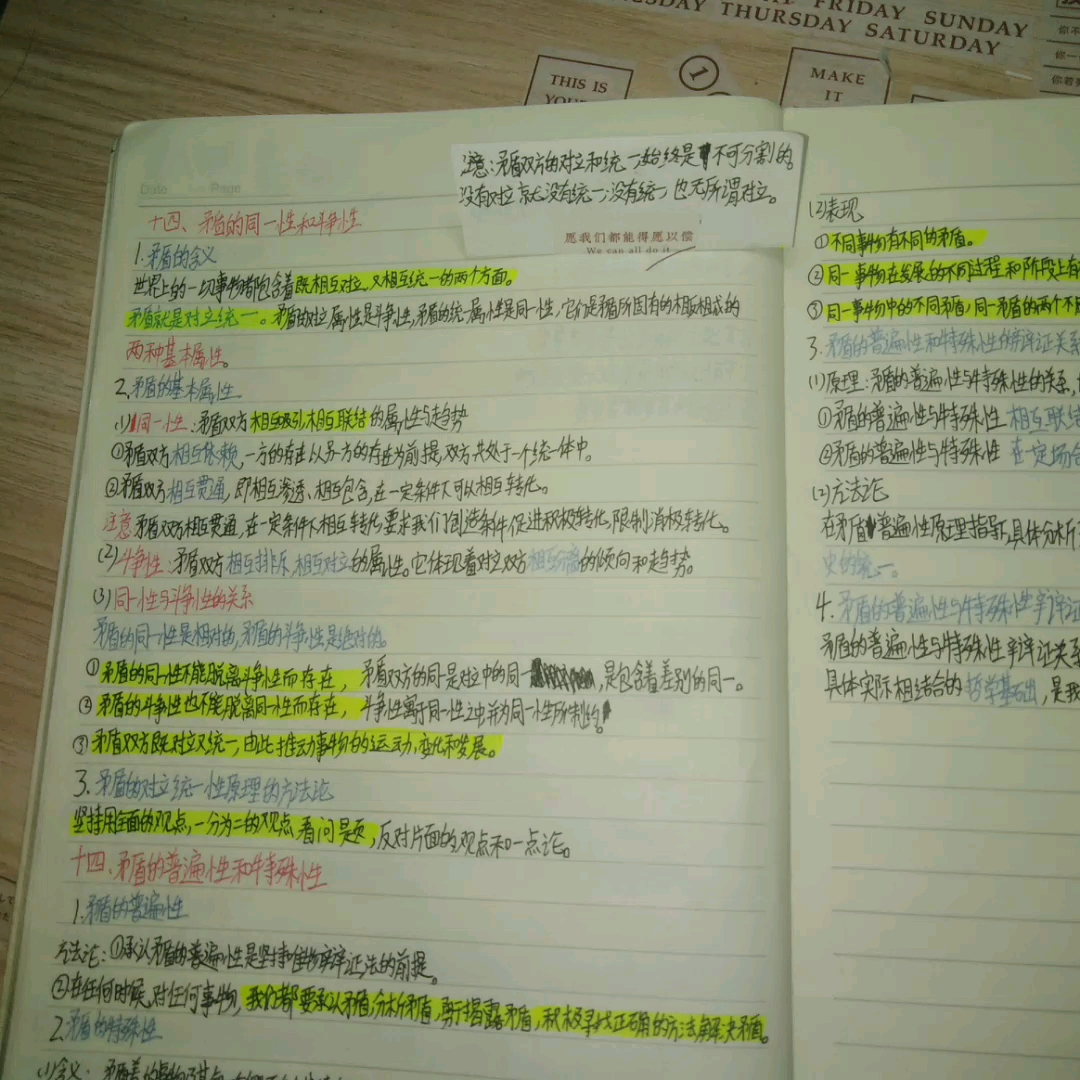 FRIDAY SUNDAY
THURSDAY SATURDAY
THIS IS
1
MAKE
IT
Date
Page
注意：矛盾双方的对立和统一始终是不可分割的。
没有对立就没有统一；没有统一也无所谓对立。
愿我们都能得愿以偿
We can all do it
十四、矛盾的同一性和斗争性
1.矛盾的含义
世界上的一切事物都包含着既相互对立，又相互统一的两个方面。
矛盾就是对立统一。矛盾的对立属性是斗争性，矛盾的统一属性是同一性，它们是矛盾所固有的相反相成的
两种基本属性。
2.矛盾的基本属性
(1)同一性：矛盾双方相互吸引、相互联结的属性与趋势
①矛盾双方相互依赖，一方的存在以另一方的存在为前提，双方共处于一个统一体中。
②矛盾双方相互贯通，即相互渗透、相互包含，在一定条件下可以相互转化。
注意 矛盾双方相互贯通，在一定条件下相互转化，要求我们创造条件促进积极转化，限制消极转化。
(2)斗争性：矛盾双方相互排斥、相互对立的属性。它体现着对立双方相互分离的倾向和趋势。
(3)同一性与斗争性的关系
矛盾的同一性是相对的，矛盾的斗争性是绝对的。
①矛盾的同一性不能脱离斗争性而存在，矛盾双方的同一是对立中的同一，是包含着差别的同一。
②矛盾的斗争性也不能脱离同一性而存在，斗争性寓于同一性之中，并为同一性所制约
③矛盾双方既对立又统一，由此推动事物的运动、变化和发展。
3.矛盾的对立统一性原理的方法论
坚持用全面的观点，一分为二的观点看问题，反对片面的观点和一点论。
十四、矛盾的普遍性和特殊性
1.矛盾的普遍性
方法论：①承认矛盾的普遍性是坚持唯物辩证法的前提。
②在任何时候，对任何事物，我们都要承认矛盾，分析矛盾，勇于揭露矛盾，积极寻找正确的方法解决矛盾。
2.矛盾的特殊性
(1)含义：矛盾着的事物及其
(2)表现
①不同事物有不同的矛盾。
②同一事物在发展的不同过程和阶段上有
③同一事物中的不同矛盾，同一矛盾的两个不
3.矛盾的普遍性和特殊性的辩证关系
(1)原理：矛盾的普遍性与特殊性的关系，
①矛盾的普遍性与特殊性 相互联结
②矛盾的普遍性与特殊性 在一定场合
(2)方法论
在矛盾普遍性原理指导，具体分析
史的统一。
4.矛盾的普遍性与特殊性辩证
矛盾的普遍性与特殊性辩证关系
具体实际相结合的哲学基础，是我